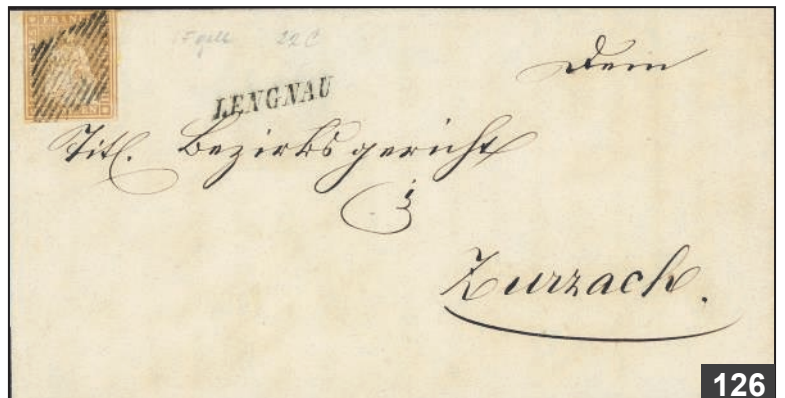 FRANCO
22C
LENGNAU
Dem
Titl. Bezirksgericht
Zurzach.
126